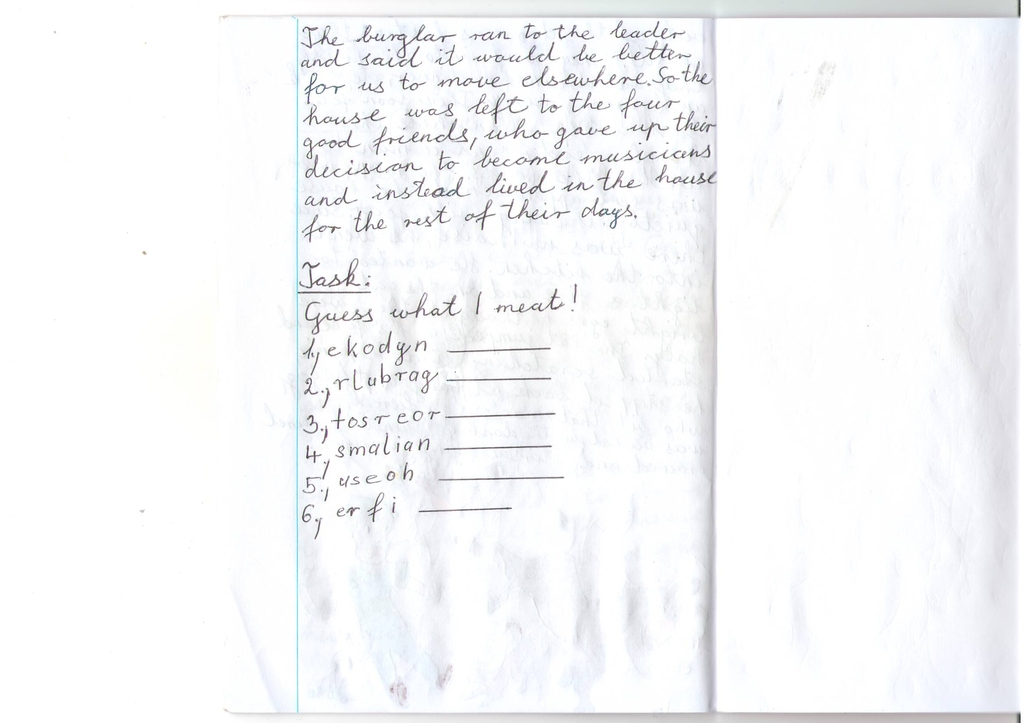 The burglar ran to the leader
and said it would be better
for us to move elsewhere. So the
house was left to the four
good friends, who gave up their
decision to become musiciens
and instead lived in the house
for the rest of their days.
Task:
Guess what I meat!
1., ekodyn
2., rlubrag
3., tosreor
4., smalian
5., useoh
6., erfi